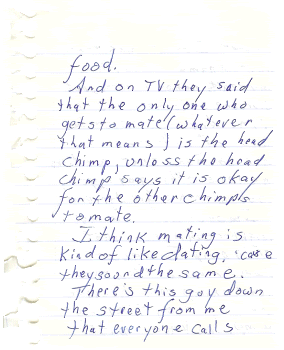 food.
And on TV they said
that the only one who
gets to mate (whatever
that means) is the head
chimp, unless the head
chimp says it is okay
for the other chimps
to mate.
I think mating is
kind of like dating, 'case
they sound the same.
There's this guy down
the street from me
that everyone calls